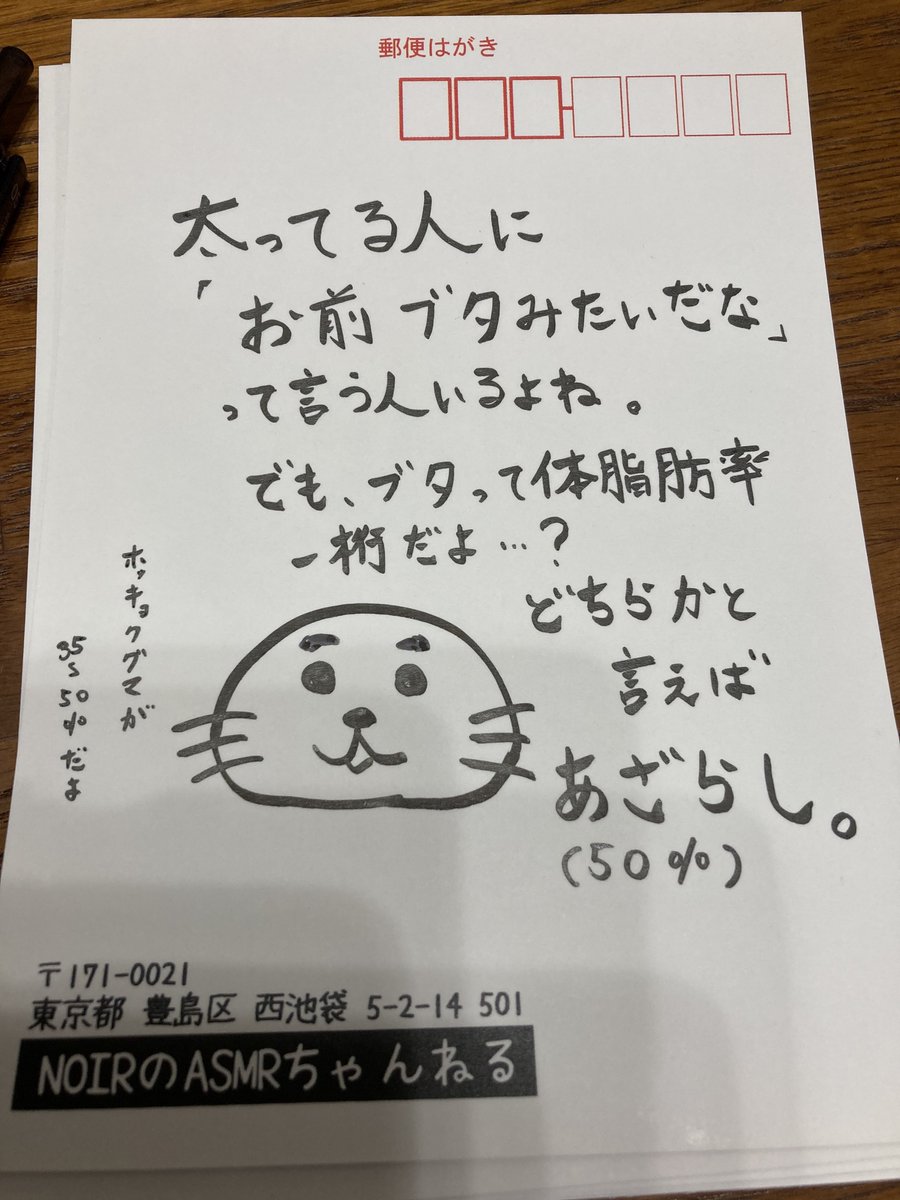 郵便はがき
太ってる人に
「お前 ブタみたいだな」
って言う人いるよね。
でも、ブタって体脂肪率
一桁だよ…?
どちらかと
言えば
あざらし。
(50%)
ホッキョクグマが
35〜50%だよ
〒171-0021
東京都 豊島区 西池袋 5-2-14 501
NOIRのASMRちゃんねる